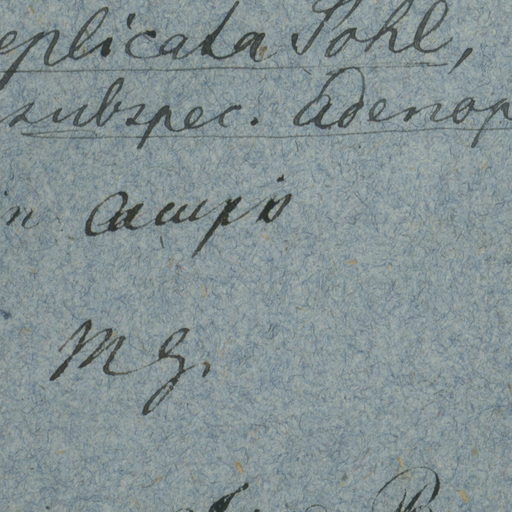 eplicata Pohl,
subspec. adenop
in campis
MG.